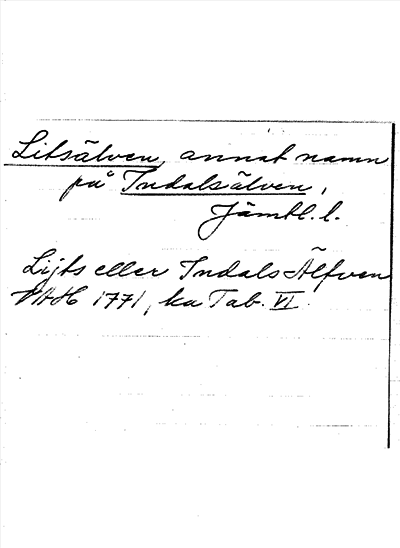 Litsälven, annat namn
på Indalsälven,
Jämtl. l.
Lijts eller Indals-Älfven
VAH 1771, ka Tab. VI.